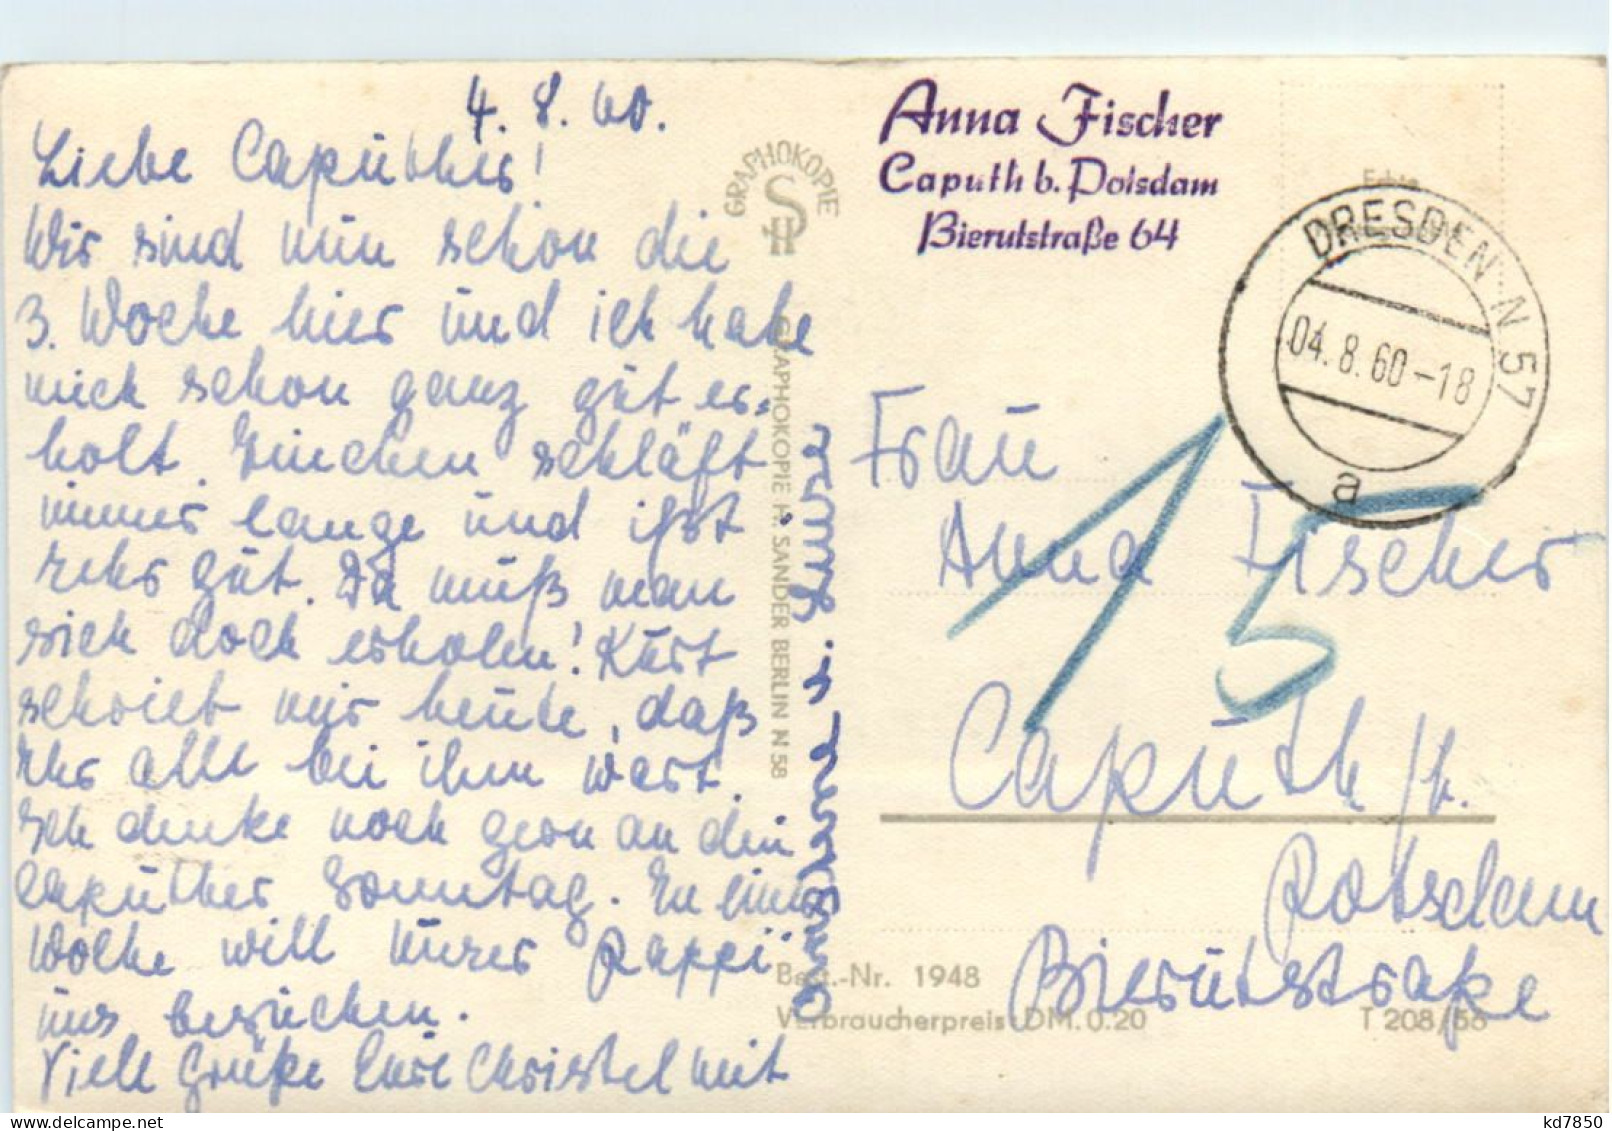 4. 8. 60.
Liebe Capüther!
Wir sind nun schon die
3. Woche hier und ich habe
mich schon ganz gut er-
holt. schläft
immer lange und ißt
sehr gut. Da muß man
sich doch erholen! Kurt
schrieb mir heute, daß
Ihr alle bei ihm wart.
Ich denke noch gern an den
Capüther Sonntag. In einer
Woche will unser Pappi
uns besuchen.
Viele Grüße Eure Christel mit
GRAPHOKOPIE
GRAPHOKOPIE H. SANDER BERLIN N 58
Anna Fischer
Caputh b. Potsdam
Bierutstraße 64
Echte
DRESDEN N 57
04. 8. 60 -18
a
15
Frau
Anna Fischer
Caputh /b.
Potsdam
Bierutstraße
Best.-Nr. 1948
Verbraucherpreis DM. 0.20
T 208/58
delcampe.net
kd7850